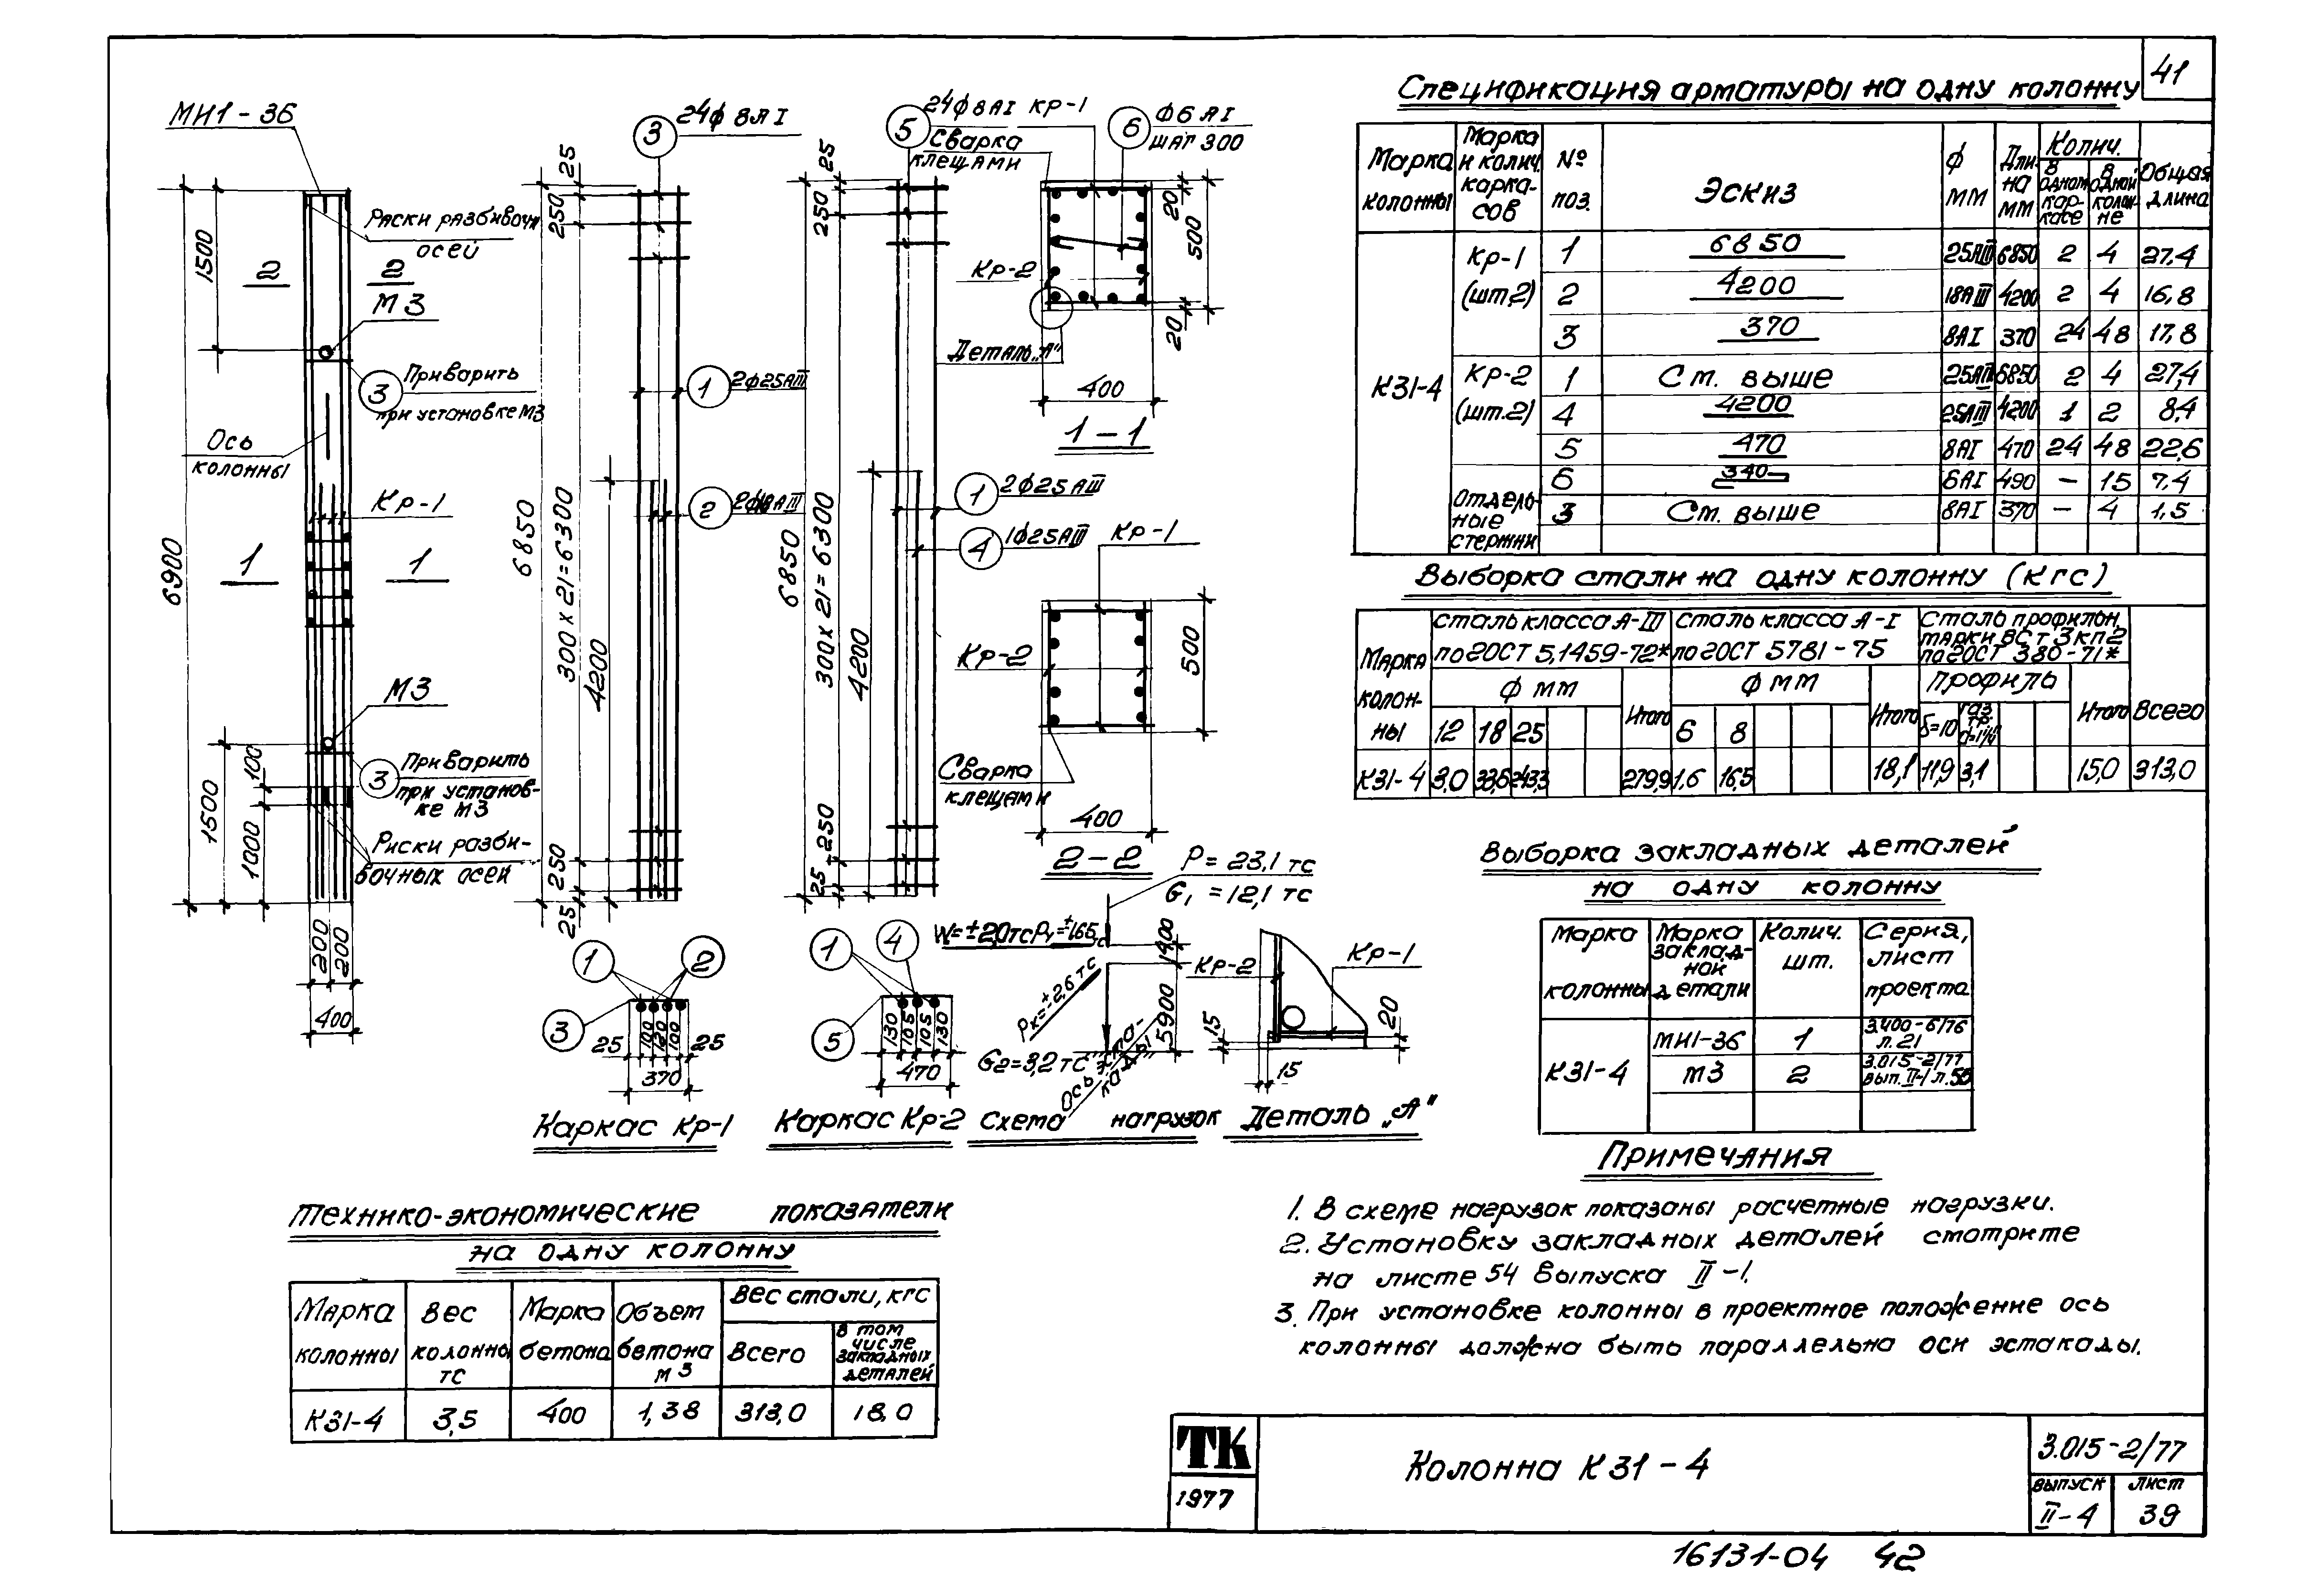 41
МИ1-36
Риски разбивочн
осей
1500
2 2
М3
3 Приварить
при установке М3
Ось
колонны
Кр-1
1 1
6900
М3
3 Приварить
при установ-
ке М3
100
1500
1000
Риски разби-
вочных осей
200 200
400
3 24ф 8АI
25
250
6850
300х21=6300
4200
1 2ф25АIII
2 2ф18АIII
250
25
1 2
3
25 100 120 100 25
370
Каркас Кр-1
5 24ф8АI
25
250
6850
300х21=6300
4200
1 2ф25АIII
4 1ф25АIII
250
25
1 4
5
130 105 105 130
470
Каркас Кр-2
Кр-1
6 Ф6АI
шаг 300
Сварка
клещами
Кр-2
Деталь „А"
20
500
20
400
1-1
Кр-1
Кр-2
500
Сварка
клещами
400
2-2
Р=23,1тс
G1=12,1тс
W=±2,0тс
Рк=±2,6тс
G2=3,2тс
1400
5900
Схема нагрузок
Кр-2
Кр-1
15
20
15
Деталь „А"
Спецификация арматуры на одну колонну
Марка колонны
Марка и колич. карка-сов
№ поз.
Эскиз
ф мм
Дли-на мм
Колич.
в одном кар-касе
в одной колон-не
Общая длина
К31-4
Кр-1 (шт.2) 1 6850 25АIII 6850 2 4 27,4
2 4200 18АIII 4200 2 4 16,8
3 370 8АI 370 24 48 17,8
Кр-2 (шт.2) 1 См. выше 25АIII 6850 2 4 27,4
4 4200 25АIII 4200 1 2 8,4
5 470 8АI 470 24 48 22,6
Отдель-ные стержни 6 340 6АI 490 – 15 7,4
3 См. выше 8АI 370 – 4 1,5
Выборка стали на одну колонну (кгс)
Марка колон-ны
Сталь класса А-III по ГОСТ 5.1459-72*
Сталь класса А-I по ГОСТ 5781-75
Сталь профильн. марки ВСт3кп2 по ГОСТ 380-71*
ф мм Итого ф мм Итого Профиль Итого Всего
12 18 25 6 8 δ=10 газ тр.
К31-4 3,0 33,6 243,3 279,9 1,6 16,5 18,1 11,9 3,1 15,0 313,0
Выборка закладных деталей
на одну колонну
Марка колонны
Марка заклад-ной детали
Колич. шт.
Серия, лист проекта
К31-4 МИ1-36 1 3.400-6/76 л.21
М3 2 3.015-2/77 вып. II-1 л.
Примечания
1. В схеме нагрузок показаны расчетные нагрузки.
2. Установку закладных деталей смотрите
на листе 54 выпуска II-1.
3. При установке колонны в проектное положение ось
колонны должна быть параллельна оси эстакады.
Технико-экономические показатели
на одну колонну
Марка колонны
Вес колонны тс
Марка бетона
Объем бетона м3
Вес стали, кгс
Всего
В том числе закладных деталей
К31-4 3,5 400 1,38 313,0 18,0
ТК
1977
Колонна К31-4
3.015-2/77
выпуск лист
II-4 39
16131-04 42